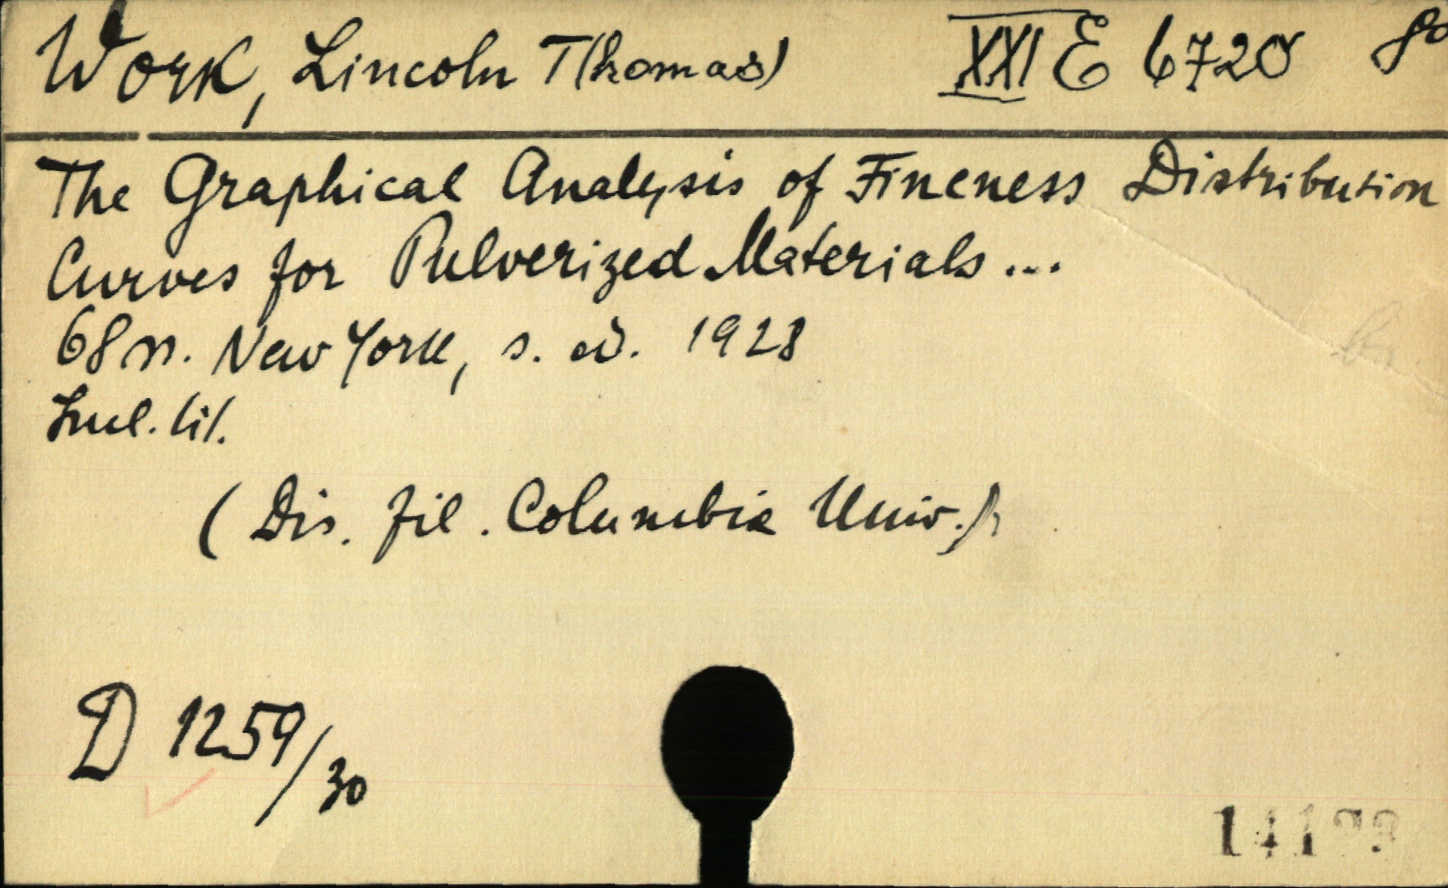 Work, Lincoln T(homas) XXI E 6720 8º
The Graphical Analysis of Fineness Distribution
Curves for Pulverized Materials...
68 n. New York, s. ed. 1928
Incl. lit.
(Dis. fil. Columbia Univ.)
D 1259/30